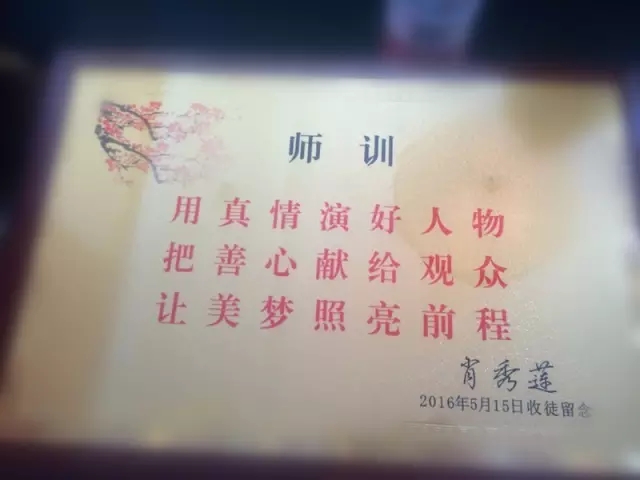 师训
用真情演好人物
把善心献给观众
让美梦照亮前程
肖秀莲
2016年5月15日收徒留念